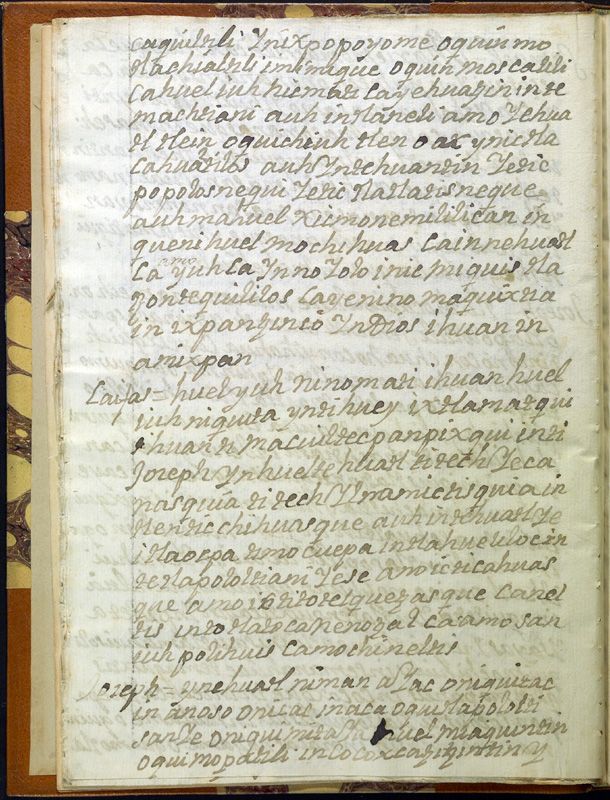 caquitili Ynixpopoyome oquinmo
tlachialtili inmimique oquinmoscalili
cahuel iuh nicmati Cayehuatzin in te
machtiani auh intlaneli amo Yehua
tl tlein oquichiuh tlen oax ynictla
cahualtilos auh Yntehuantin Yetic
popolosnequi Yetic tlatlatisneque
auh mahuel xicmonemililican in
quenihuel mochihuas Cainnehuatl
Ca amo yuh Ca Ynno Yolo inic miquis tla
zontequililos Cayenino maquixtia
in ixpantzinco Yn Dios ihuan in
amixpan
Cayfas = huel yuh ninomati ihuan huel
iuh niquita yntihuey ixtlamatqui
ihuan timacuiltecpanpixqui inti
Joseph Ynhuel tehuatl titech Yeca
nasquia titech Ylnamictisquia in
tlen ticchihuasque auh intehuatl Ye
itlaocpa timocuepa intlahueliloc in
tetlapololtiani Yese amo ticcahuas
que amo
tis intotlatoca Ca amo san
iuh polihuis Camochineltis
Joseph = ynehuatl niman aYac oniquitac
in anoso onicac inaca oquitlapololti
sanYe oniquimita huel miaquintin
oquimopatili in cocoxcatzitzintin y